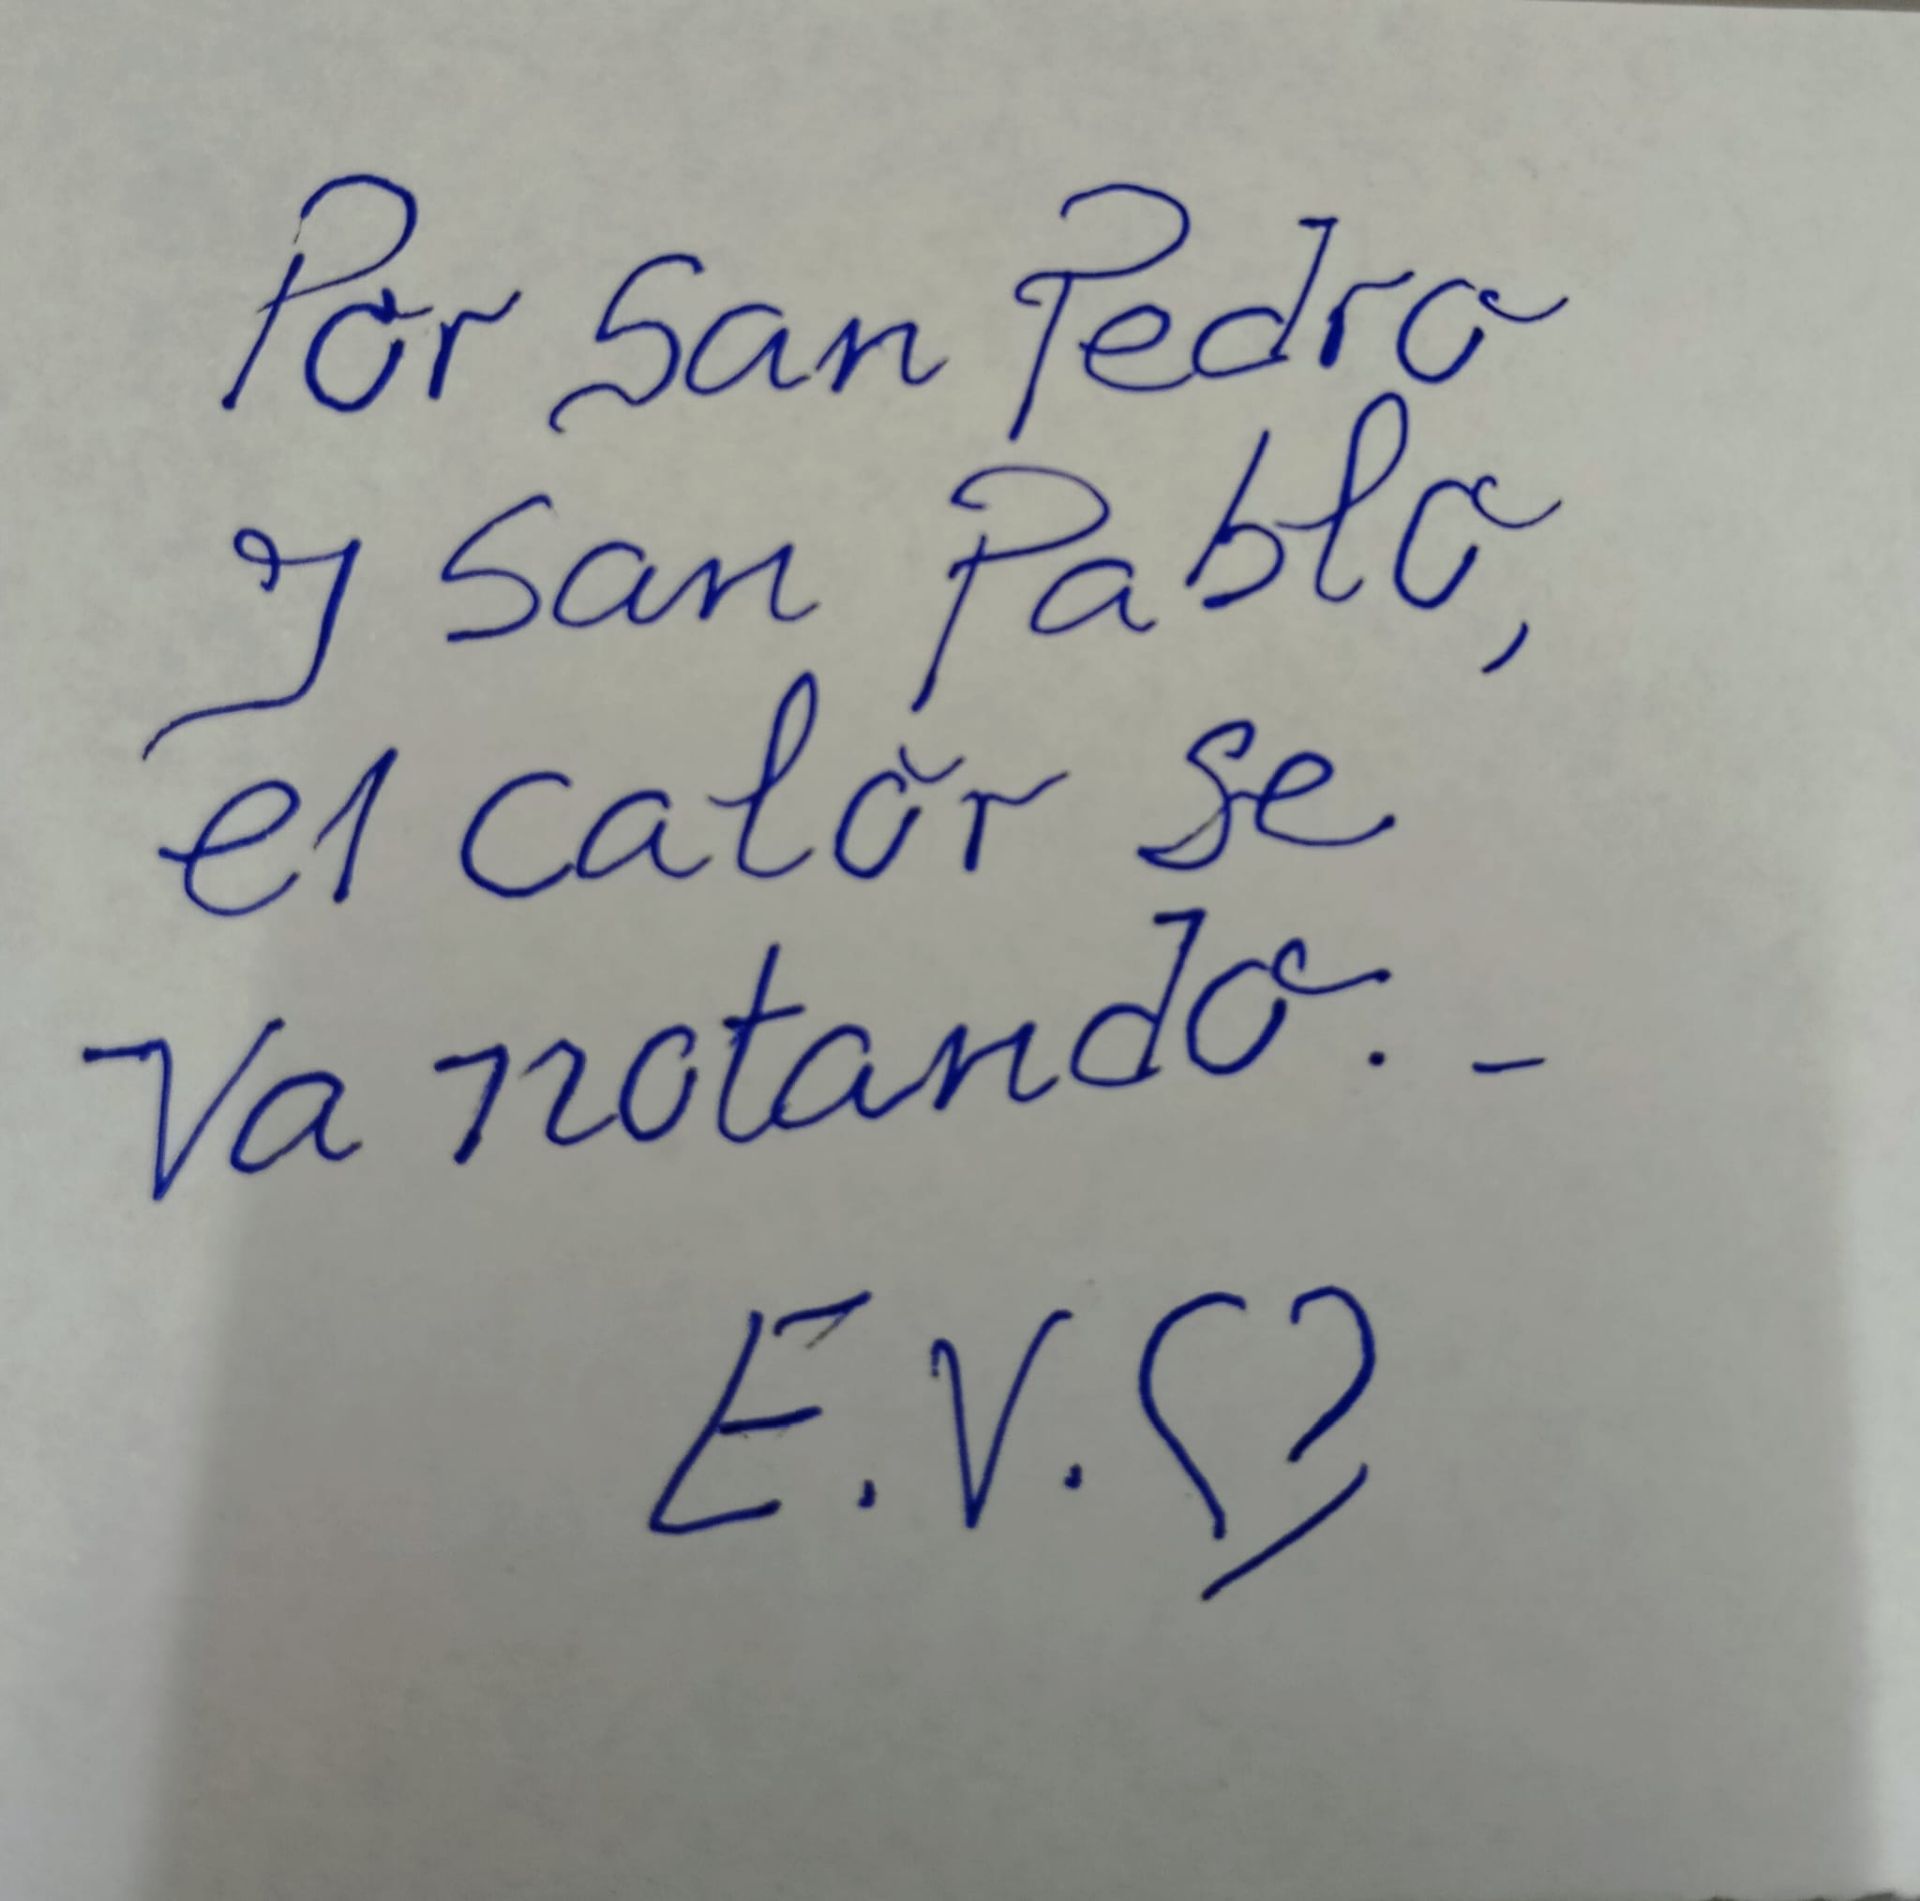 Por San Pedro
y San Pablo,
el calor se
va notando. -
E.V.